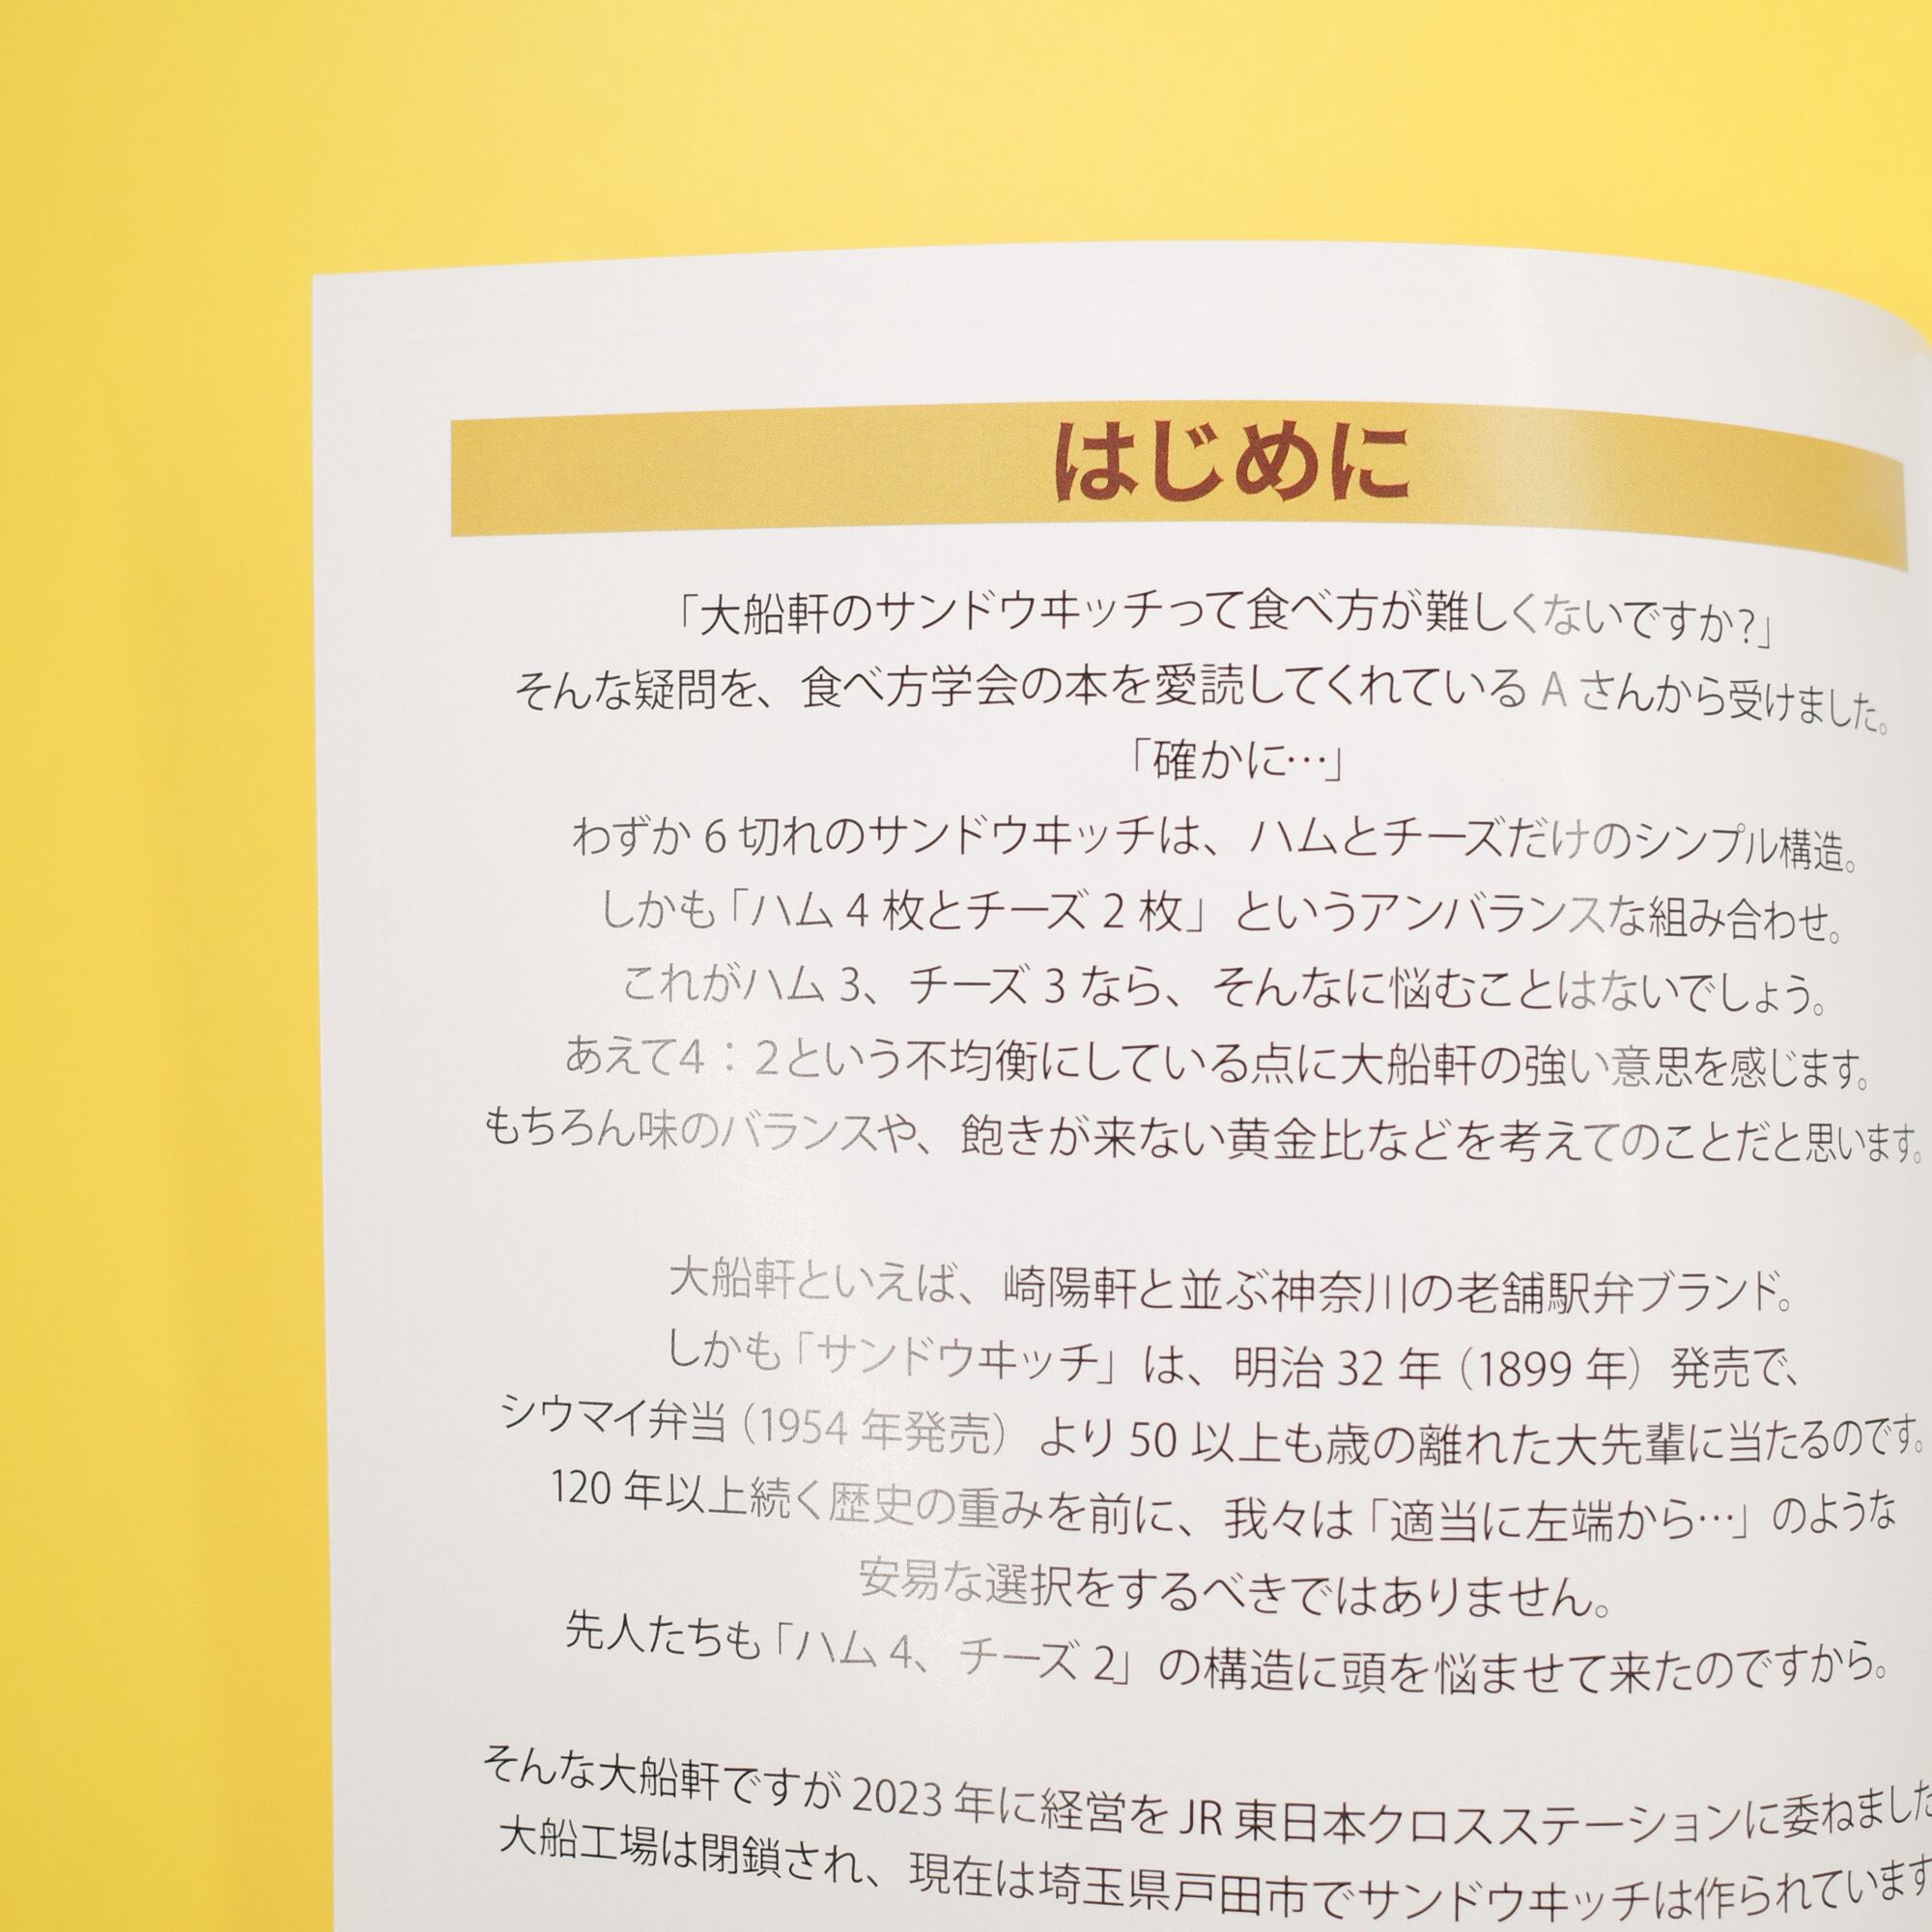 はじめに
「大船軒のサンドウヰッチって食べ方が難しくないですか?」
そんな疑問を、食べ方学会の本を愛読してくれている A さんから受けました。
「確かに…」
わずか 6 切れのサンドウヰッチは、ハムとチーズだけのシンプル構造。
しかも「ハム 4 枚とチーズ 2 枚」というアンバランスな組み合わせ。
これがハム 3、チーズ 3 なら、そんなに悩むことはないでしょう。
あえて4：2という不均衡にしている点に大船軒の強い意思を感じます。
もちろん味のバランスや、飽きが来ない黄金比などを考えてのことだと思います。
大船軒といえば、崎陽軒と並ぶ神奈川の老舗駅弁ブランド。
しかも「サンドウヰッチ」は、明治 32 年（1899 年）発売で、
シウマイ弁当（1954 年発売）より 50 以上も歳の離れた大先輩に当たるのです。
120 年以上続く歴史の重みを前に、我々は「適当に左端から…」のような
安易な選択をするべきではありません。
先人たちも「ハム 4、チーズ 2」の構造に頭を悩ませて来たのですから。
そんな大船軒ですが 2023 年に経営を JR 東日本クロスステーションに委ねました
大船工場は閉鎖され、現在は埼玉県戸田市でサンドウヰッチは作られています